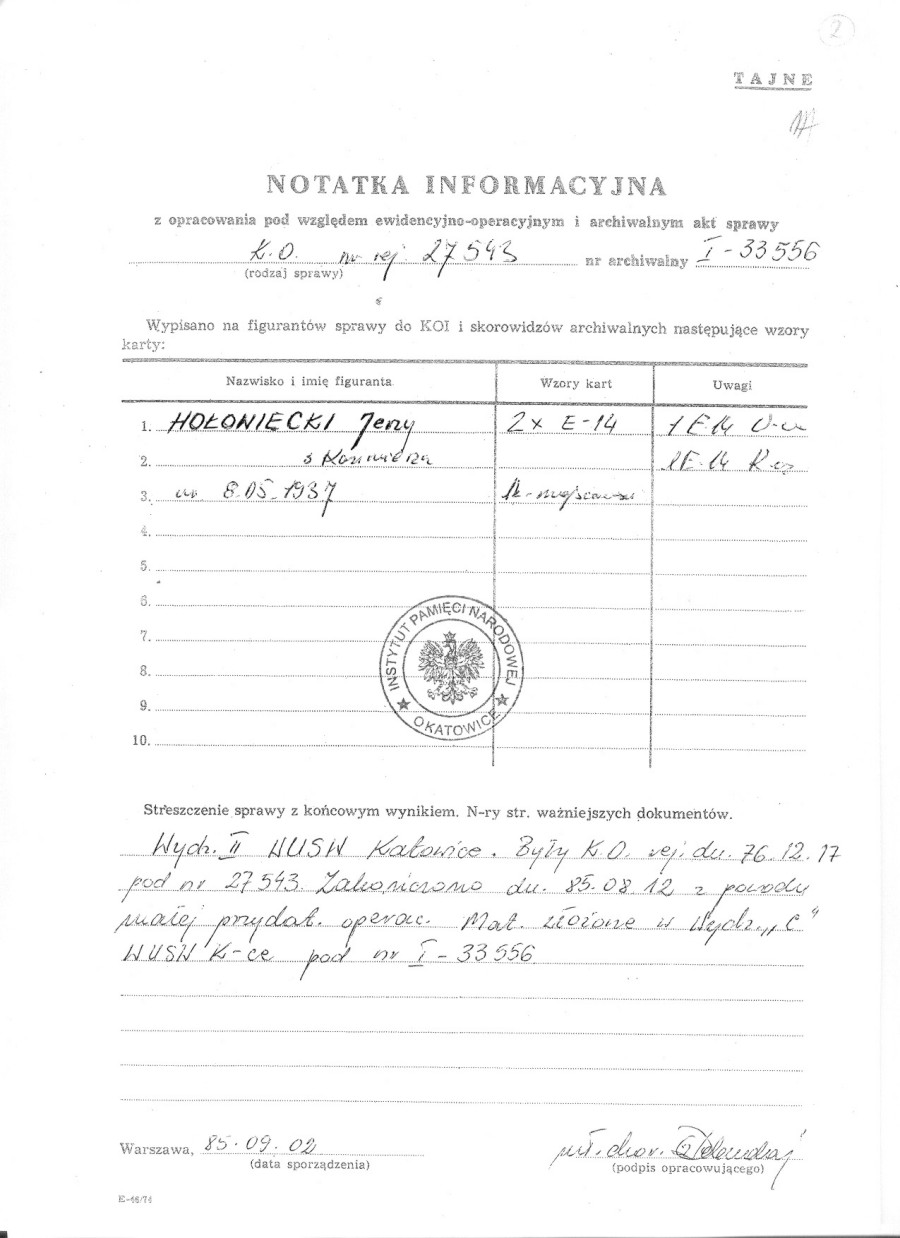 2
TAJNE
NOTATKA INFORMACYJNA
z opracowania pod względem ewidencyjno-operacyjnym i archiwalnym akt sprawy
K.O. nr rej 27543 nr archiwalny I-33556
(rodzaj sprawy)
Wypisano na figurantów sprawy do KOI i skorowidzów archiwalnych następujące wzory
karty:
Nazwisko i imię figuranta Wzory kart Uwagi
1. HOŁONIECKI Jerzy 2x E-14 1 E-14
2. s Kazimierza 1 E-14
3. ur 8.05.1937
4.
5.
6.
7.
8.
9.
10.
INSTYTUT PAMIĘCI NARODOWEJ
O KATOWICE
Streszczenie sprawy z końcowym wynikiem. N-ry str. ważniejszych dokumentów.
Wydz. II WUSW Katowice. Były K.O. rej. dn. 76.12.17
pod nr 27543. Zakończono dn. 85.08.12 z powodu
małej przydat. operac. Mat. złożone w Wydz. „C"
WUSW K-ce pod nr I-33556
Warszawa, 85.09.02 mł. chor.
(data sporządzenia) (podpis opracowującego)
E-46/74